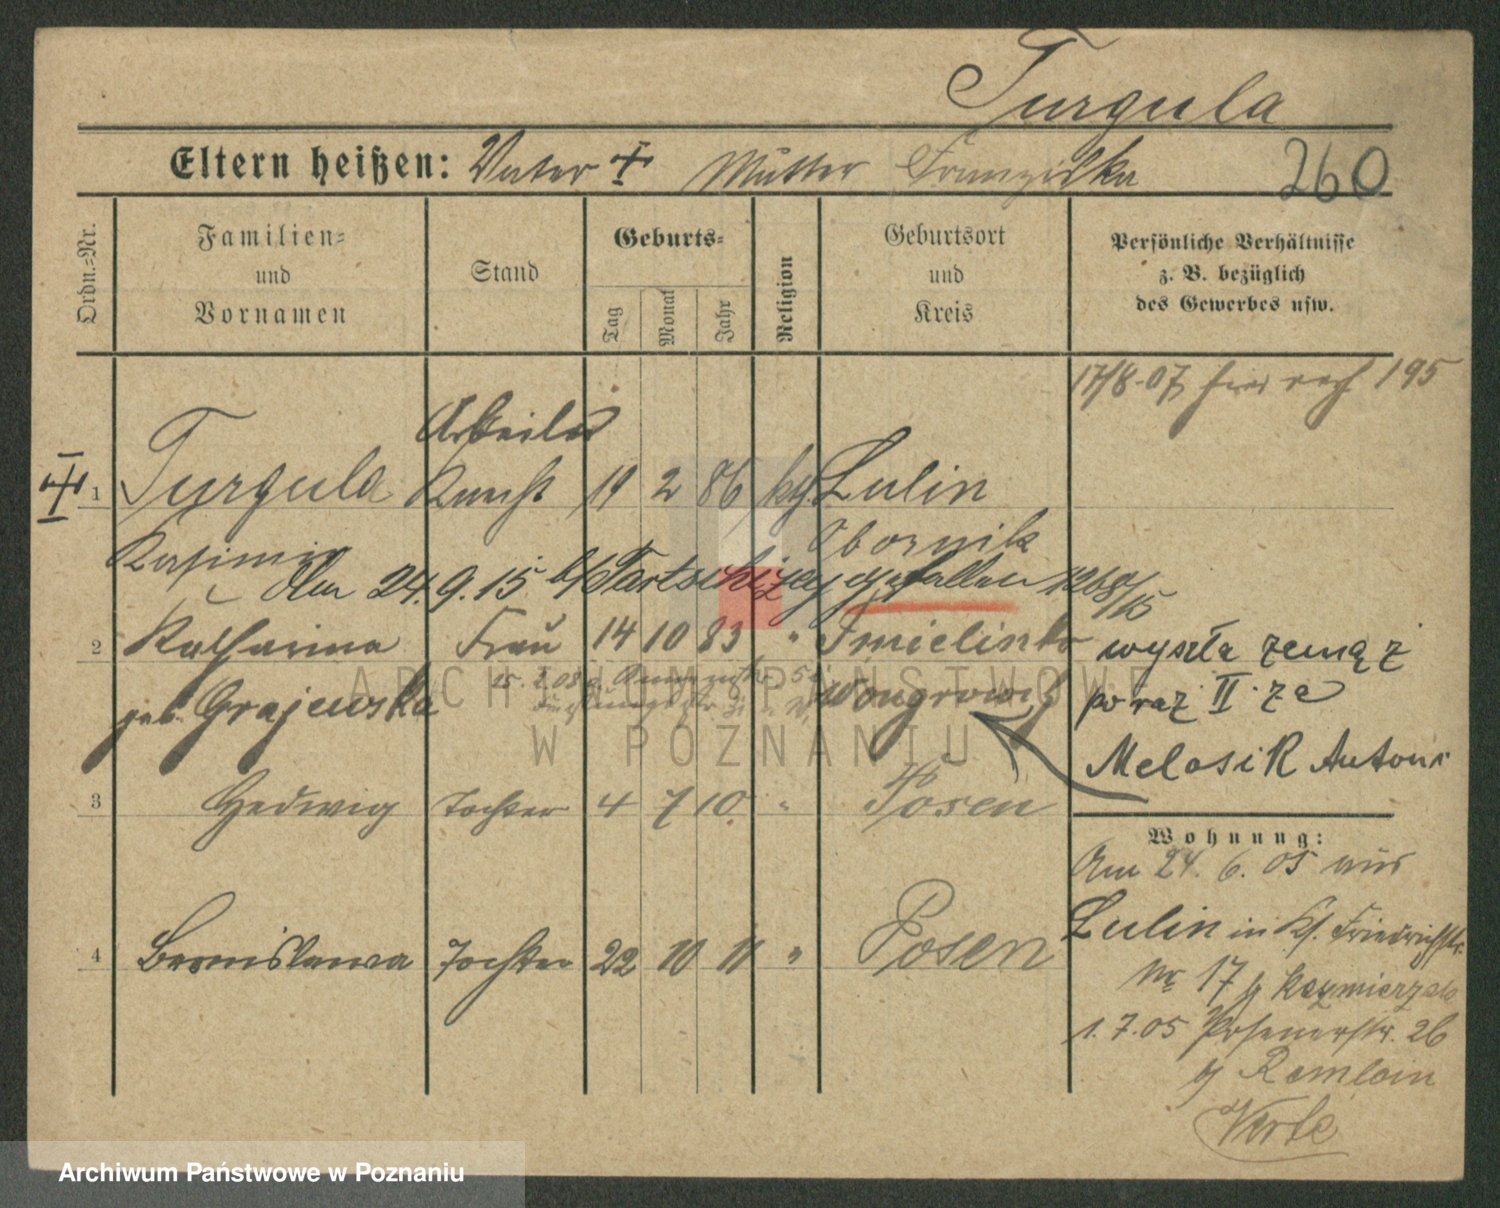 Turgula
Eltern heißen: Vater † Mutter Franziska
260
Ordn.-Nr.
Familien-
und
Vornamen
Stand
Geburts-
Tag
Monat
Jahr
Religion
Geburtsort
und
Kreis
Persönliche Verhältnisse
z. B. bezüglich
des Gewerbes usw.
17/8-07 195
Arbeiter
1 Turgula Knecht 19 2 86 kg Lulin
Kasimir Obornik
Am 24.9.15 b/ gefallen 1268/15
2 Katharina Frau 14 10 83 " Imielinko
geb. Grajewska Wongrowitz
wyszła zemąż
po raz II. za
Melosik Antoni
3 Hedwig Tochter 4 7 10. " Posen
4 Bronislawa Tochter 22 10 11 " Posen
Wohnung:
Am 24. 6. 05 aus
Lulin in Kl. Friedrichstr.
Nr 17 b/ Kazmierzak
1. 7. 05 Posenerstr. 26
b/
ARCHIWUM PAŃSTWOWE
W POZNANIU
Archiwum Państwowe w Poznaniu